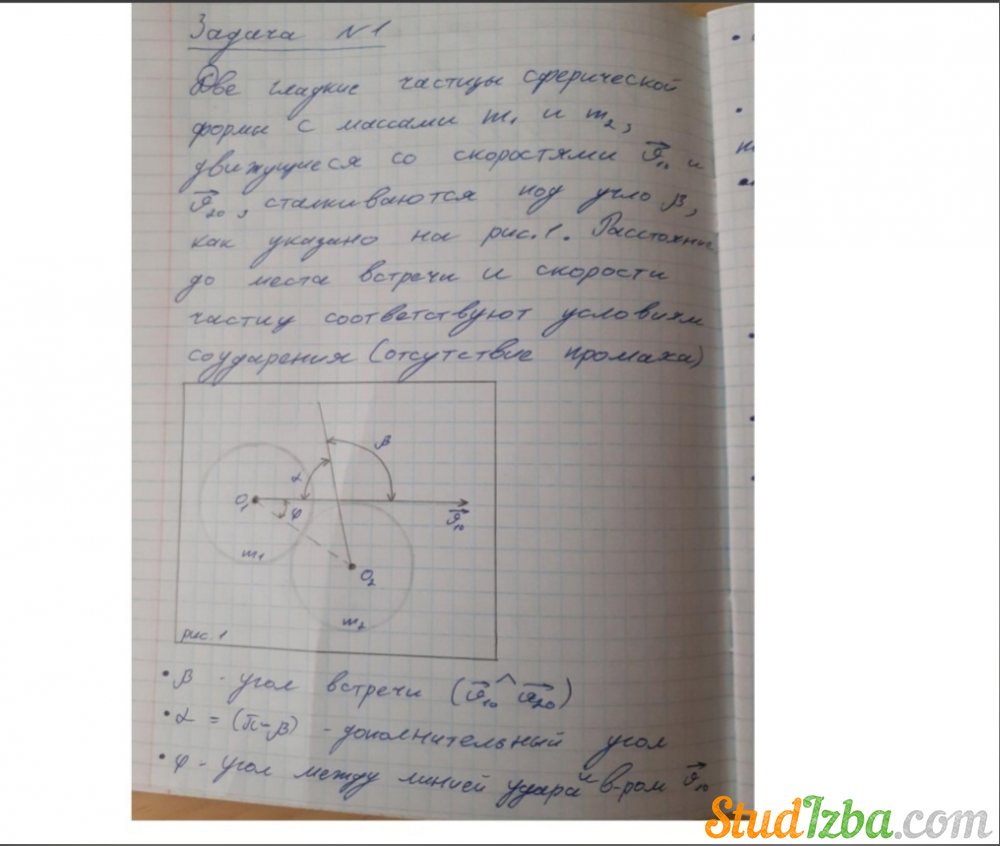 Задача №1
Две гладкие частицы сферической
формы с массами m₁ и m₂,
движущиеся со скоростями v⃗₁₀ и
v⃗₂₀, сталкиваются под угло β,
как указано на рис.1. Расстояние
до места встречи и скорости
частиц соответствуют условиям
соударения (отсутствие промаха)
β
α
O₁
φ
v⃗₁₀
m₁
O₂
m₂
рис. 1
• β - угол встречи (v⃗₁₀ ^ v⃗₂₀)
• α = (π-β) - дополнительный угол
• φ - угол между линией удара и в-ром v⃗₁₀
StudIzba.com